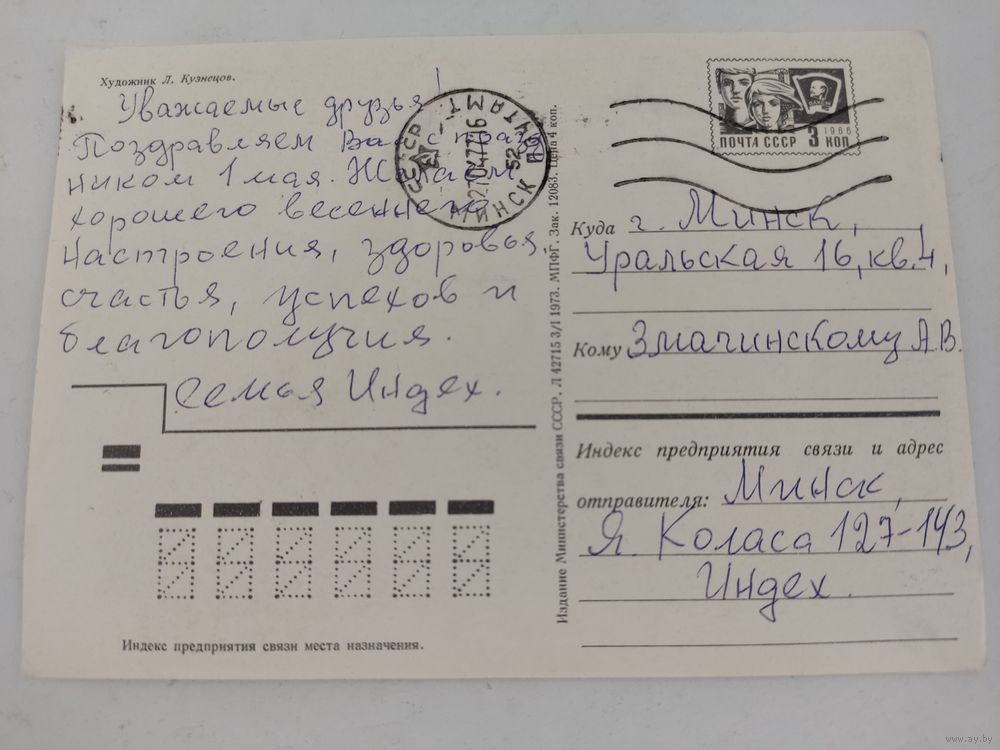 Художник Л. Кузнецов.
Уважаемые друзья!
Поздравляем Вас с празд
ником 1 мая. Желаем
хорошего весеннего
настроения, здоровья,
счастья, успехов и
благополучия.
Семья Индех.
СССР
МИНСК 52
ПОЧТАМТ
ПОЧТА СССР
3 КОП
1966
Издание Министерства связи СССР. Л 42715 3/I 1973. МПФГ. Зак. 12083. Цена 4 коп.
Куда г. Минск,
Уральская 16, кв. 4,
Кому Змачинскому А.В.
Индекс предприятия связи и адрес
отправителя: Минск,
Я. Коласа 127-143,
Индех.
Индекс предприятия связи места назначения.
www.ay.by